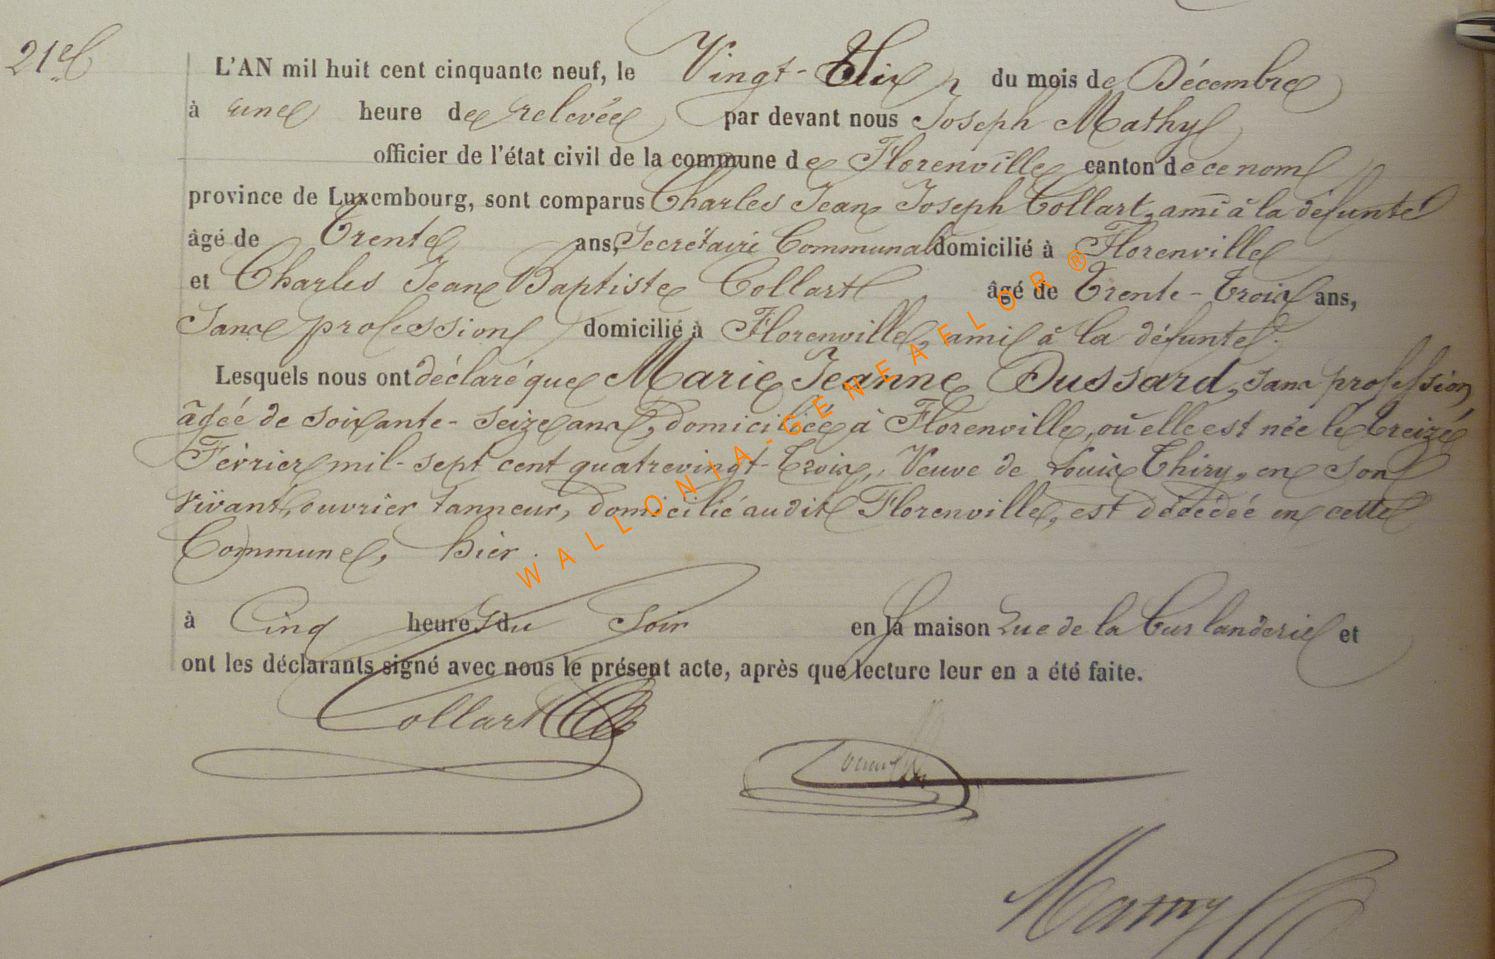 21e
L'AN mil huit cent cinquante neuf, le Vingt-Six du mois de Décembre
à une heure de relevée par devant nous Joseph Mathy
officier de l'état civil de la commune de Florenville canton de ce nom
province de Luxembourg, sont comparus Charles Jean Joseph Collart, ami à la défunte
âgé de Trente ans, Secrétaire Communal domicilié à Florenville
et Charles Jean Baptiste Collart âgé de Trente-Trois ans,
Sans profession domicilié à Florenville, ami à la défunte.
Lesquels nous ont déclaré que Marie Jeanne Dussard, sans profession,
âgée de soixante-seize ans, domiciliée à Florenville, où elle est née le treize
Février mil-sept cent quatrevingt-Trois, Veuve de Louis Thiry, en son
vivant, ouvrier tanneur, domicilié audit Florenville, est décédée en cette
Commune, hier.
à Cinq heures du Soir en la maison Rue de la et
ont les déclarants signé avec nous le présent acte, après que lecture leur en a été faite.
Collart
WALLONIA-GENEAFLOR®